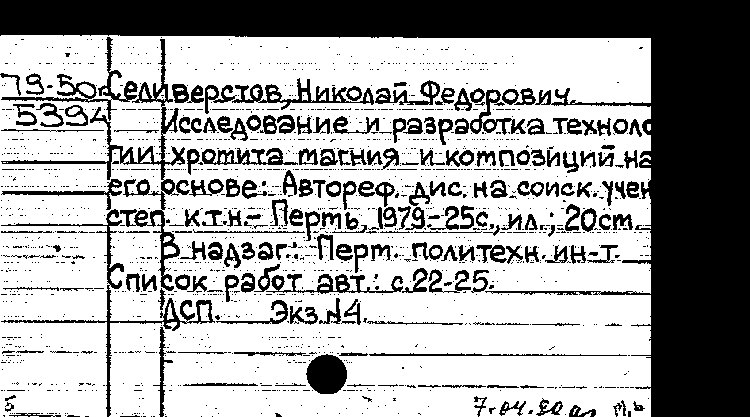 79-50
5394
Селиверстов, Николай Федорович.
Исследование и разработка техноло
гии хромита магния и композиций на
его основе: Автореф. дис. на соиск. учен
степ. к.т.н.- Пермь, 1979.-25с., ил.; 20см.
В надзаг.: Перм. политехн. ин-т.
Список работ авт.: с.22-25.
ДСП. Экз.№4.
5